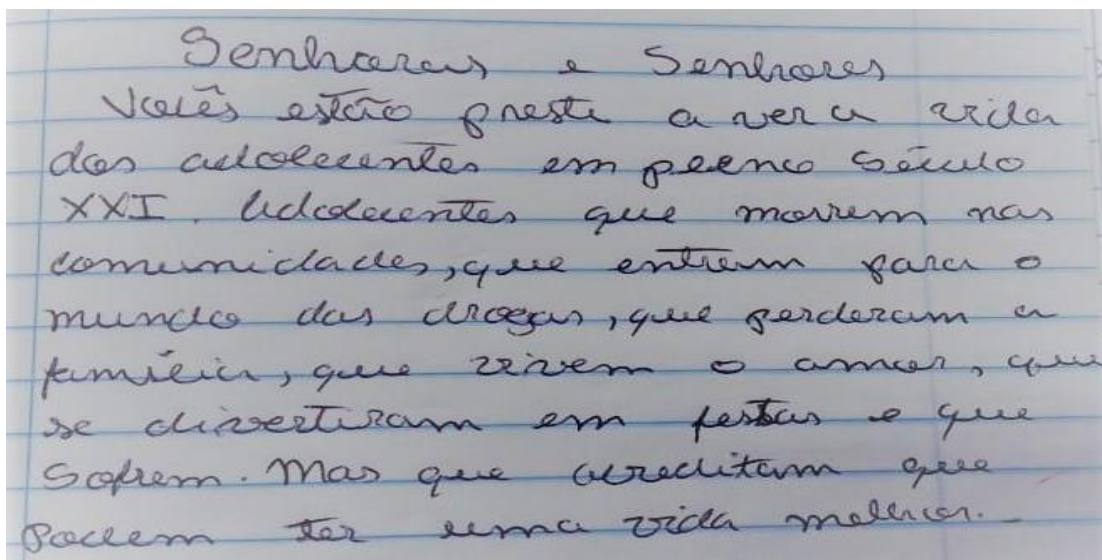 Senhoras e Senhores
Vocês estão preste a ver a vida
dos adolecentes em pleno Século
XXI. Adolecentes que morrem nas
comunidades, que entram para o
mundo das drogas, que perderam a
família, que vivem o amor, que
se divertiram em festas e que
Sofrem. Mas que acreditam que
Podem ter uma vida melhor.